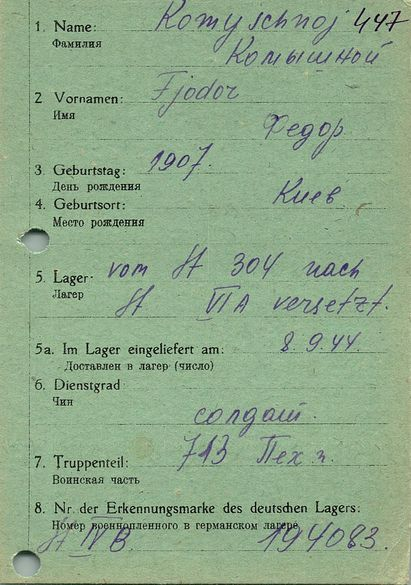 1. Name: Komyschnoj 447
Фамилия Комышной
2 Vornamen: Fjodor
Имя
Федор
3. Geburtstag: 1907.
День рождения
4. Geburtsort: Киев
Место рождения
5. Lager: vom St 304 nach
Лагер St VI A versetzt.
5a. Im Lager eingeliefert am: 8.9.44.
Доставлен в лагер (число)
6. Dienstgrad
Чин
солдат.
7. Truppenteil: 713 Пех п.
Воинская часть
8. Nr. der Erkennungsmarke des deutschen Lagers:
Номер военнопленного в германском лагере
St IV B 194083.